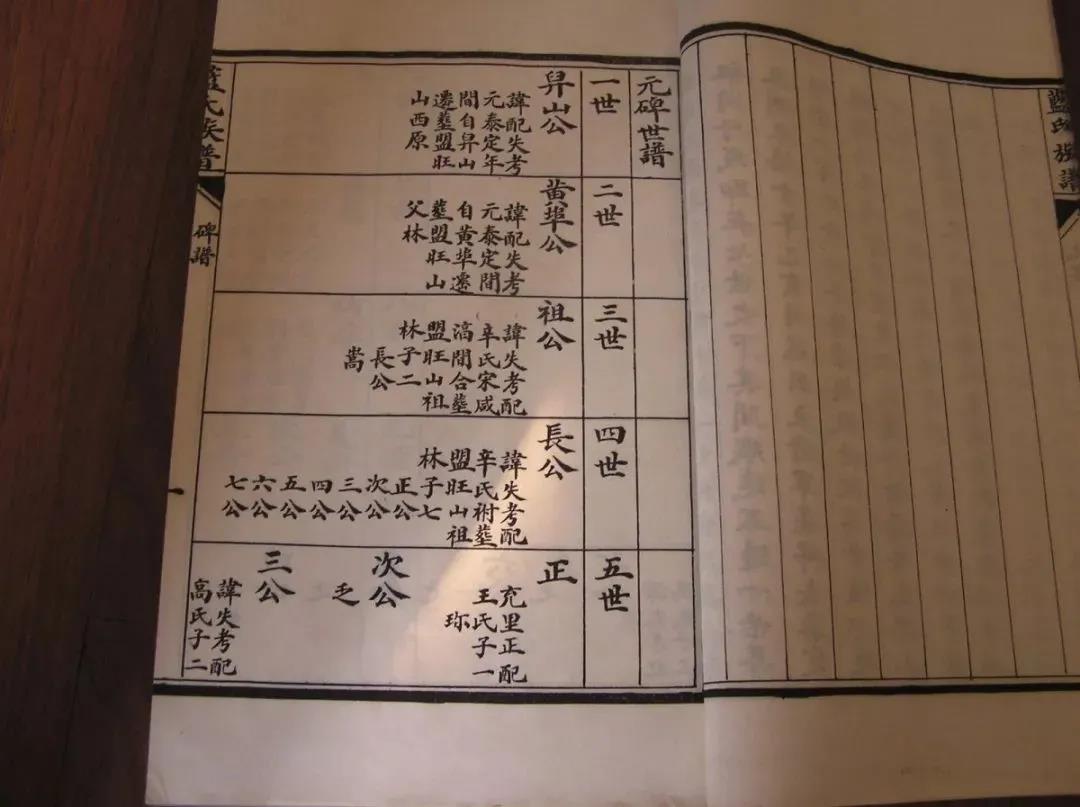 藍氏族譜
元碑世譜
一世
昇山公
諱配失考
元泰定年
間自昇山
遷塟盟旺
山西原
二世
黄埠公
諱配失考
元泰定間
自黄埠遷
塟盟旺山
父林
三世
祖公
諱失考配
辛氏宋咸
湻間合塟
盟旺山祖
林子二
長公
嵩
四世
長公
諱失考配
辛氏祔塟
盟旺山祖
林子七
正公
次公
三公
四公
五公
六公
七公
五世
正
充里正配
王氏子一
珎
次公
乏
三公
諱失考配
高氏子二
藍氏族譜
碑譜
一